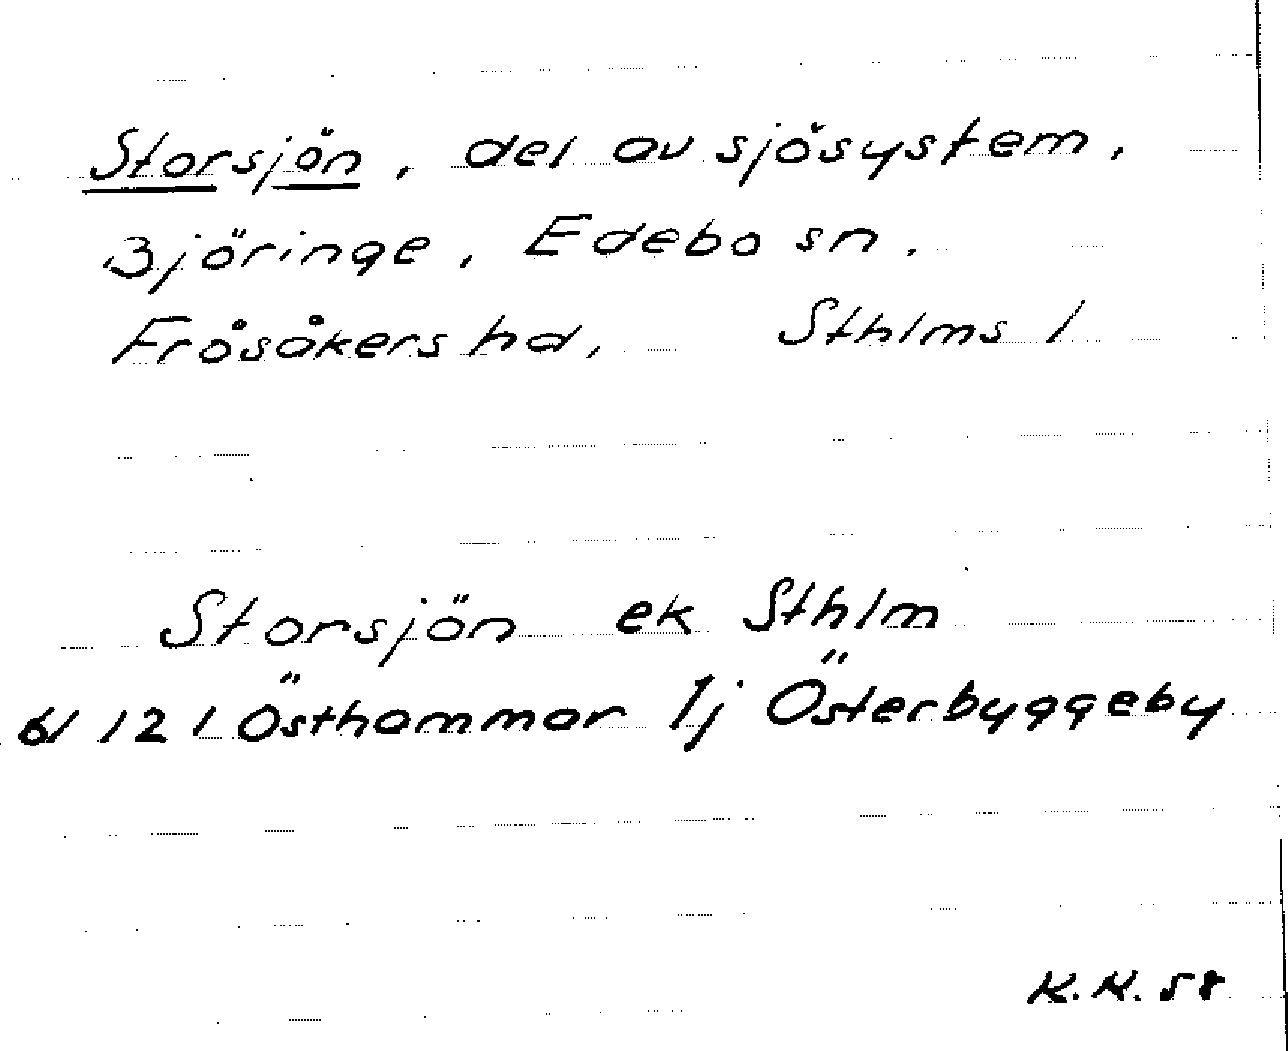 Storsjön, del av sjösystem,
Björinge, Edebo sn.
Frösåkers hd, Sthlms l
Storsjön ek Sthlm
bl 121 Östhammar 1j Österbyggeby
K.H. 58